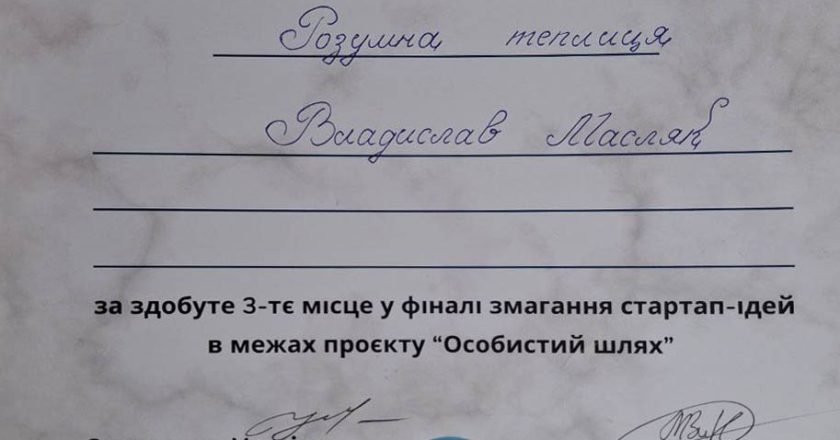 Розумна теплиця
Владислав Масляк
за здобуте 3-тє місце у фіналі змагання стартап-ідей
в межах проєкту “Особистий шлях”